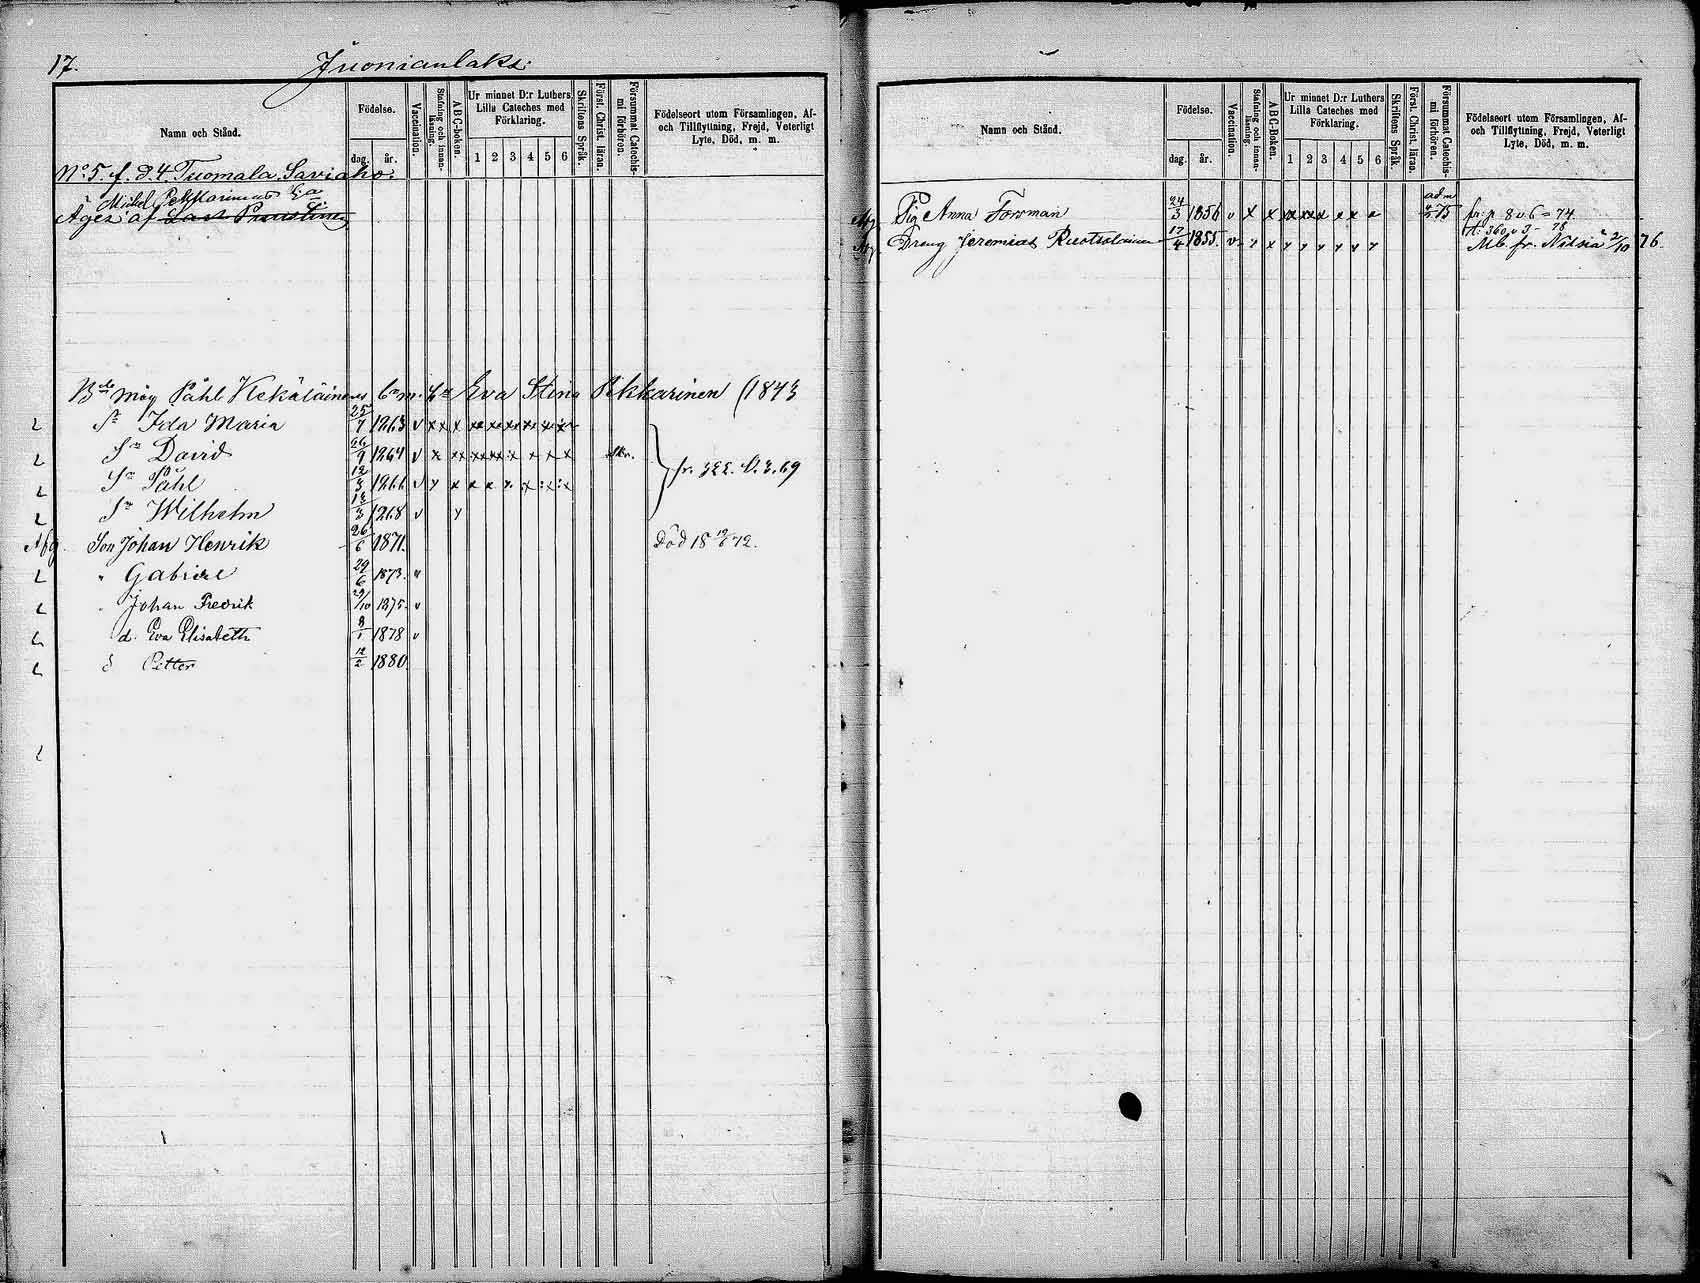 17.
Juonianlaks.
Namn och Stånd.
Födelse.
dag.
år.
Vaccination.
Stafning och innanläsning.
ABC-boken.
Ur minnet D:r Luthers Lilla Cateches med Förklaring.
1 2 3 4 5 6
Skriftens Språk.
Först. Christ. läran.
Försummat Catechismi förhören.
Födelseort utom Församlingen, Af- och Tillflyttning, Frejd, Veterligt Lyte, Död, m. m.
No 5. f. d. 4 Tuomala, Saviaho.
Michel Pekkarinens
Äges af
Bde måg Påhl Kekäläinens Eva Stina Pekkarinen (1843
Ida Maria 25/7 1863 v x x x
Sn David 26/9 1864 v
Sn Påhl 12/3 1866 v
fr. 322. V. 3. 69
Sn Wilhelm 13/3 1868 v
Afg. Son Johan Henrik 26/6 1871. Död 18 12/6 72.
" Gabriel 29/6 1873. v
" Johan Fredrik 29/10 1875. v
d. Eva Elisabeth 8/1 1878 v
s Petter 12/2 1880.
Namn och Stånd.
Födelse.
dag.
år.
Vaccination.
Stafning och innanläsning.
ABC-boken.
Ur minnet D:r Luthers Lilla Cateches med Förklaring.
1 2 3 4 5 6
Skriftens Språk.
Först. Christ. läran.
Försummat Catechismi förhören.
Födelseort utom Församlingen, Af- och Tillflyttning, Frejd, Veterligt Lyte, Död, m. m.
Afg. Pig Anna Forsman 24/3 1856 v x x fr. p 8 v 6 = 74.
t. 360 v 3 - 78
Afg. Dreng Jeremias Ruotsalainen 17/4 1855. v Mb. fr. Nilsiä 2/10 76.